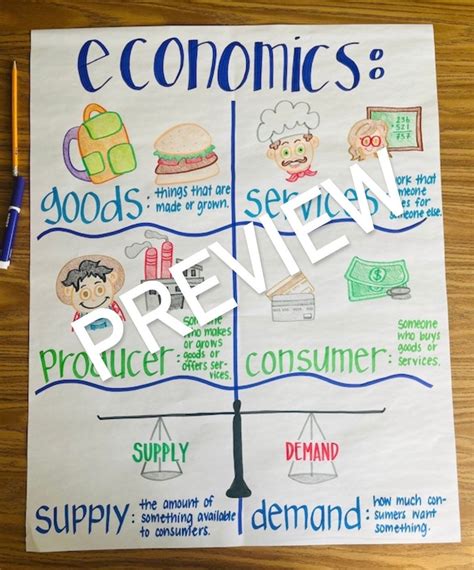 economics:
236
521
757
goods: things that are
made or grown.
services: work that
someone
does for
someone else.
PREVIEW
producer: someone
who makes
or grows
goods or
offers ser-
vices.
consumer: someone
who buys
goods or
services.
SUPPLY
DEMAND
SUPPLY: the amount of
something available
to consumers.
demand: how much con-
sumers want
something.